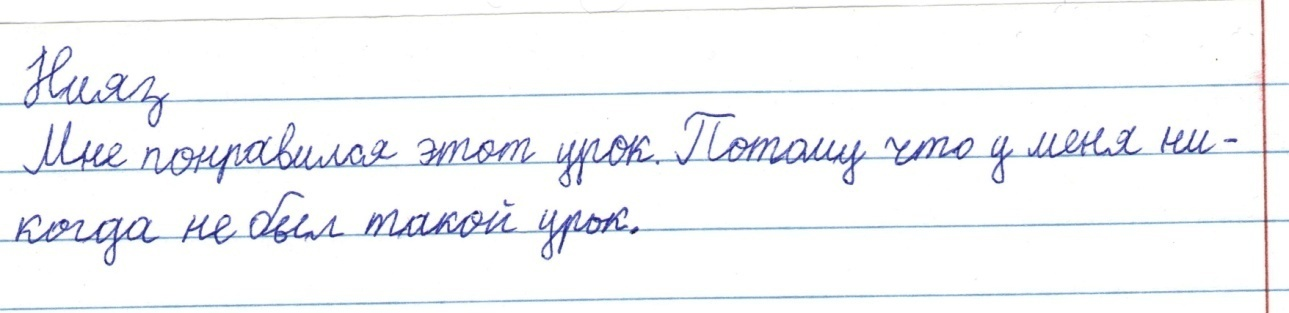 Нияз
Мне понравился этот урок. Потому что у меня ни-
когда не был такой урок.